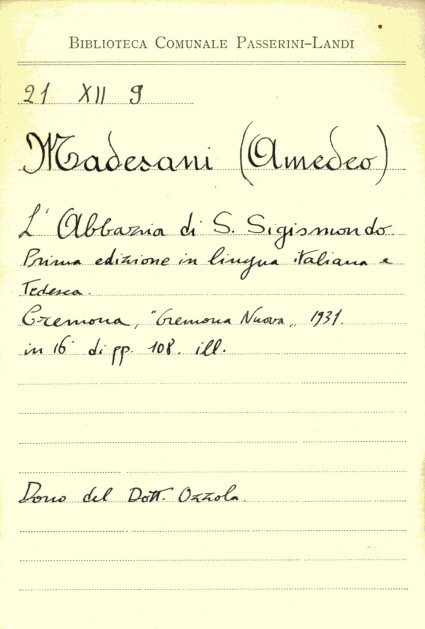 BIBLIOTECA COMUNALE PASSERINI-LANDI
21 XII 9
Madesani (Amedeo)
L' Abbazia di S. Sigismondo.
Prima edizione in lingua italiana e
Tedesca.
Cremona, "Cremona Nuova„ 1931.
in 16° di pp. 108. ill.
Dono del Dott. Ozzola.